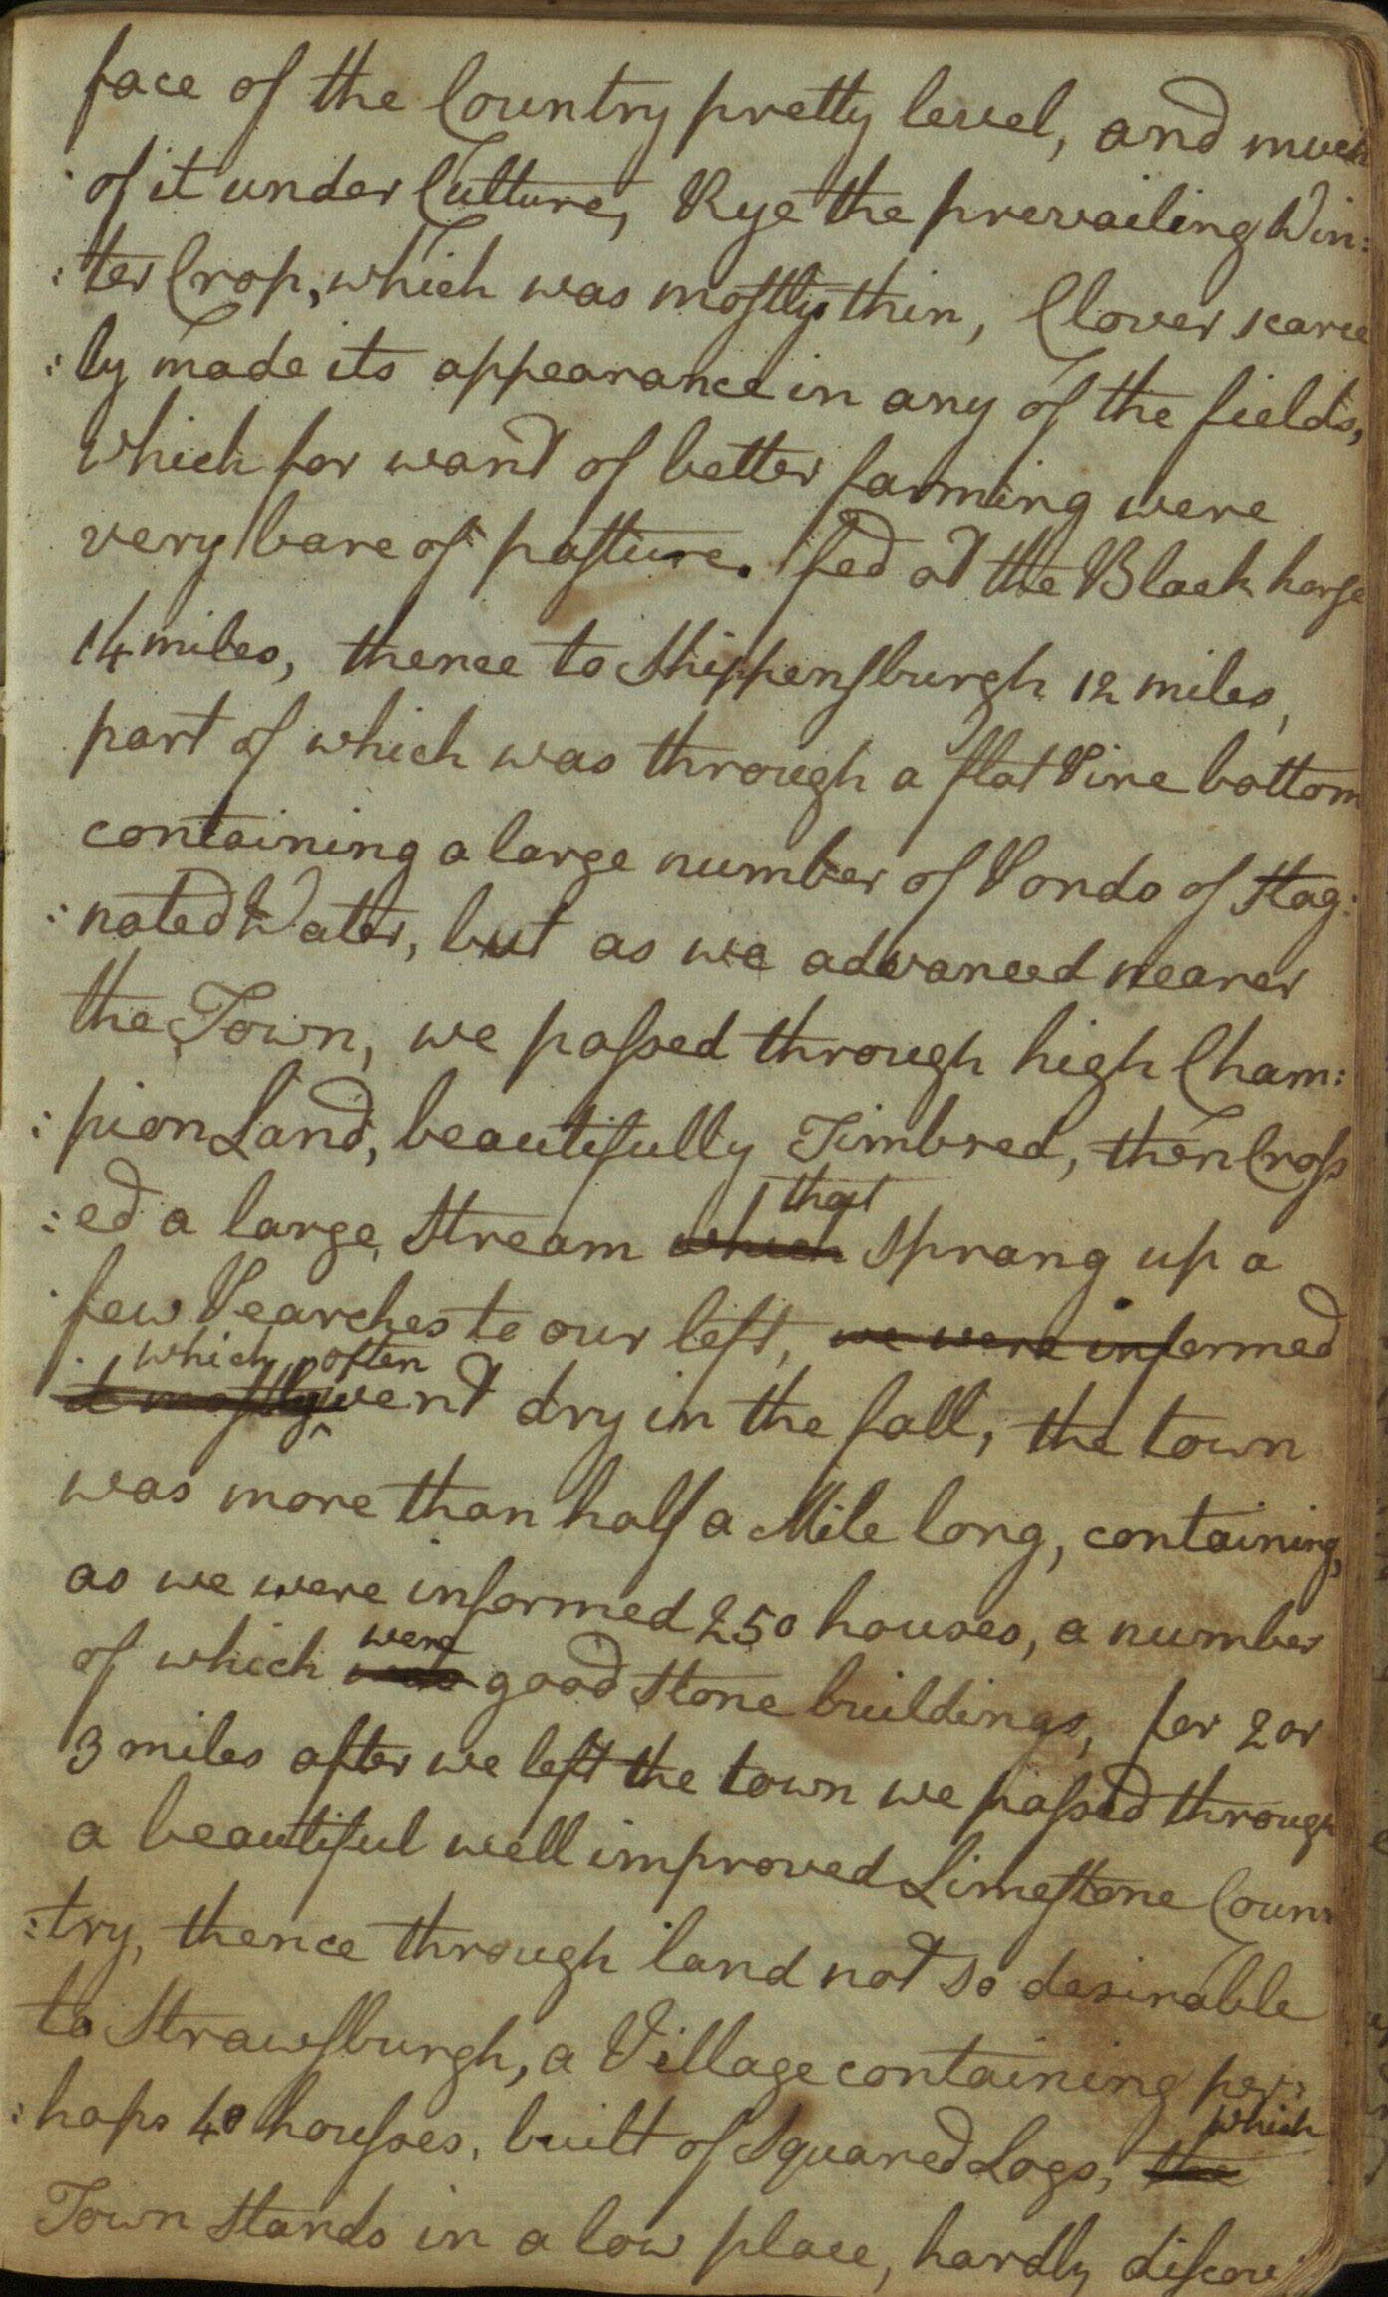 face of the Country pretty level, and much
of it under Culture, Rye the prevailing Win:
:ter Crop, which was mostly thin, Clover scarce
:ly made its appearance in any of the fields,
which for want of better farming were
very bare of pasture. fed at the Black horse
14 miles, thence to Shippensburgh 12 miles,
part of which was through a flat Pine bottom
containing a large number of Ponds of Stag:
:nated Water, but as we advanced nearer
the Town, we passed through high Cham:
:pion Land, beautifully Timbred, then Cross
that
:ed a large Stream which sprang up a
few Pearches to our left, we were informed
which often
it mostly went dry in the fall, the town
was more than half a Mile long, containing,
as we were informed 250 houses, a number
were
of which was good Stone buildings, for 2 or
3 miles after we left the town we passed through
a beautiful well improved Limestone Coun:
:try, thence through land not so desirable
to Strawsburgh, a Village containing per:
which
:haps 40 housses, built of Squared Logs, the
Town Stands in a low place, hardly discove